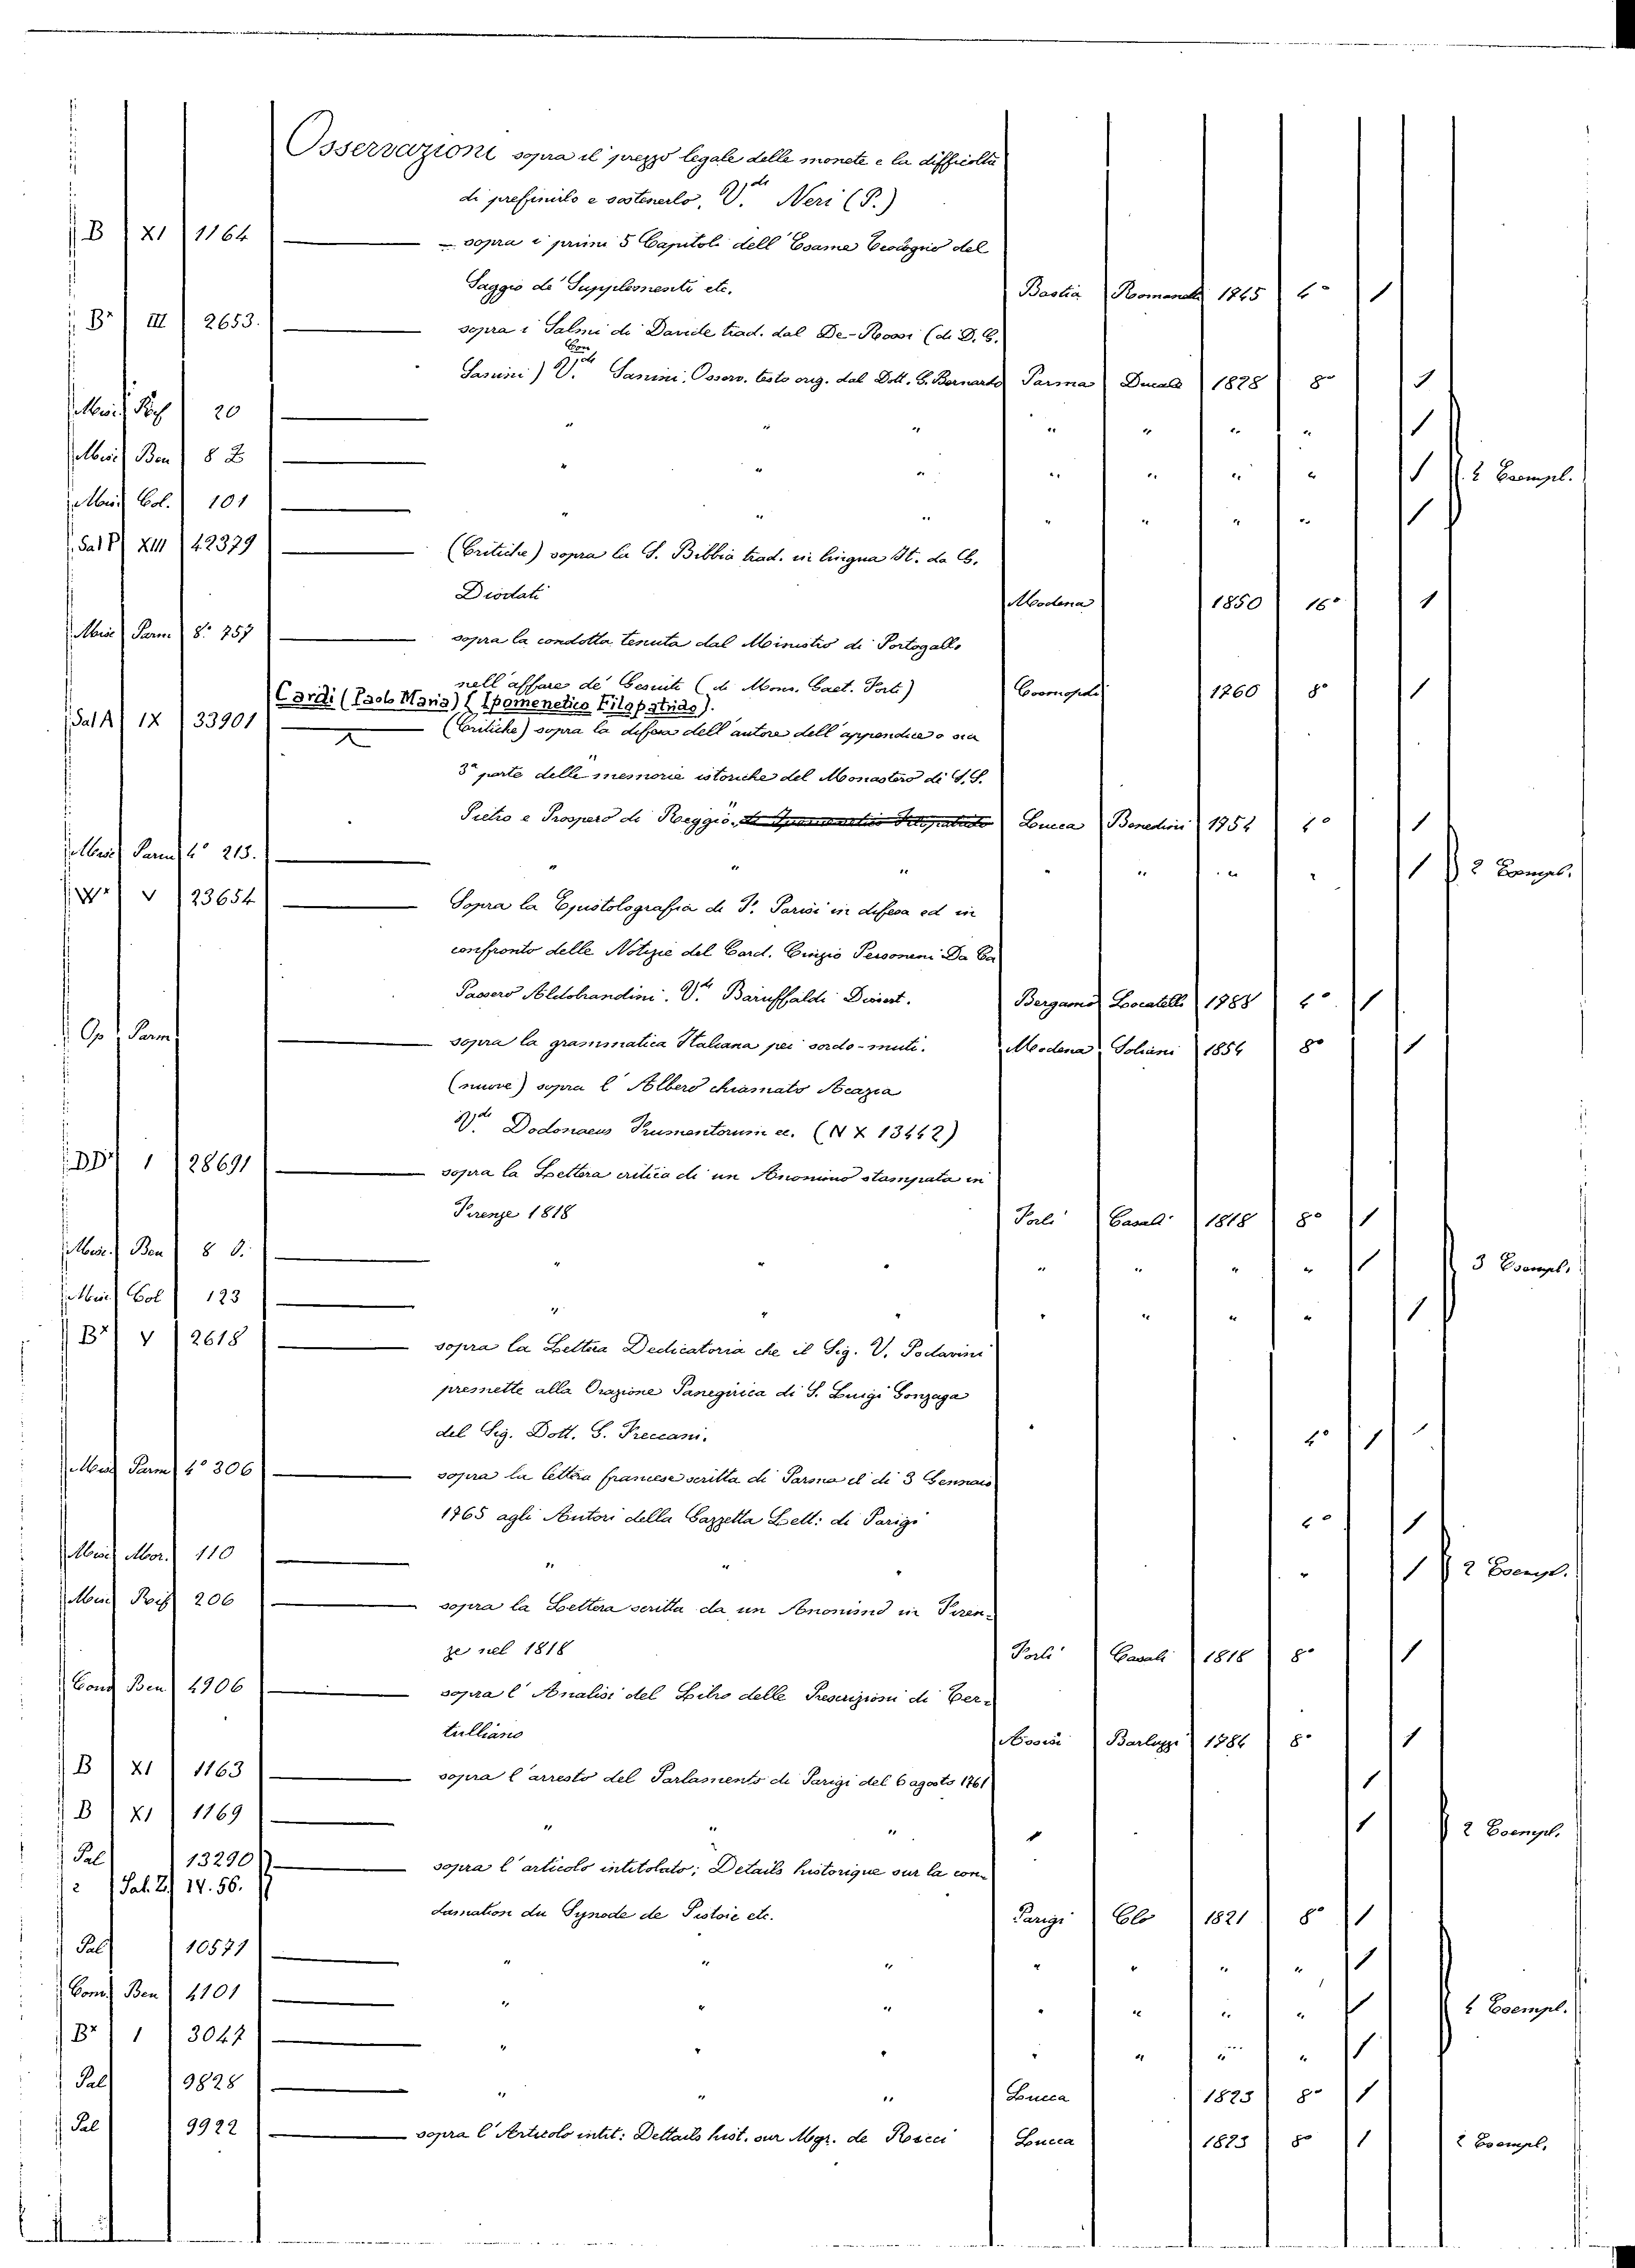 Osservazioni sopra il prezzo legale delle monete e la difficoltà
di prefinirlo e sostenerlo. V.de Neri (P.)
B XI 1164 — sopra i primi 5 Capitoli dell'Esame Teologico del
Saggio de' Supplementi etc. Bastia 1765 4° 1
Bx III 2653. — sopra i Salmi di Davide trad. dal De-Rossi (di D. G.
Sanini) V.de Sanini, Osserv. testo orig. dal Dott. G. Bernardo Parma Ducale 1828 8° 1
Misc. 20 — " " " " " " " 1
Misc. Ben 8 Z — " " " " " " " 1 Esempl.
Misc. Col. 101 — " " " " " " " 1
Sal P XIII 42379 — (Critiche) sopra la S. Bibbia trad. in lingua It. da G.
Diodati Modena 1850 16° 1
Misc Parm 8° 757 — sopra la condotta tenuta dal Ministro di Portogallo
nell'affare de' Gesuiti (di Mons. Gaet. Forti) Cosmopoli 1760 8° 1
Cardi (Paolo Maria) (Ipomenetico Filopatrido).
Sal A IX 33901 — (Critiche) sopra la difesa dell'autore dell'appendice o sia
3a parte delle memorie istoriche del Monastero di S.S.
Pietro e Prospero di Reggio. Lucca Benedini 1752 4° 1
Misc Parm 4° 213. — " " " " " " 1 2 Esempl.
V 23654 — Sopra la Epistolografia di F. Parisi in difesa ed in
confronto delle Notizie del Card. Cinzio Personeni Da Ca
Passero Aldobrandini. V.de Baruffaldi Dissert. Bergamo Locatelli 1788 4° 1
Op Parm — sopra la grammatica Italiana pei sordo-muti. Modena Soliani 1854 8° 1
(nuove) sopra l'Albero chiamato Acazia
V.de Dodonaeus Frumentorum ec. (N X 13442)
DDx 1 28691 — sopra la Lettera critica di un Anonimo stampata in
Firenze 1818 Forli Casali 1818 8° 1
Misc. Ben 8 — " " " " " " " 1 3 Esempl.
Misc Col 123 — " " " " " " " 1
Bx V 2618 — sopra la Lettera Dedicatoria che il Sig. V. Podavini
premette alla Orazione Panegirica di S. Luigi Gonzaga
del Sig. Dott. G. Treccani. 4° 1
Misc Parm 4° 306 — sopra la lettera francese scritta di Parma il di 3 Gennaio
1765 agli Autori della Gazzetta Lett: di Parigi 4° 1
Misc Mor. 110 — " " " " 1 2 Esempl.
Misc 206 — sopra la Lettera scritta da un Anonimo in Firen-
ze nel 1818 Forli Casali 1818 8° 1
Conv Ben 4906 — sopra l'Analisi del Libro delle Prescrizioni di Ter-
tulliano Assisi 1786 8° 1
B XI 1163 — sopra l'arresto del Parlamento di Parigi del 6 agosto 1761 1
B XI 1169 — " " " " 1 2 Esempl.
Pal 13290 — sopra l'articolo intitolato; Details historique sur la con-
2 Sal. Z. 14. 56.
damnation du Synode de Pistoie etc. Parigi Clo 1821 8° 1
Pal 10571 — " " " " " " " 1
Conv Ben 4101 — " " " " " " " 1 4 Esempl.
Bx 1 3047 — " " " " " " " 1
Pal 9828 — " " " Lucca 1823 8° 1
Pal 9922 — sopra l'Articolo intit: Dettails hist. sur Mgr. de Ricci Lucca 1823 8° 1 2 Esempl.